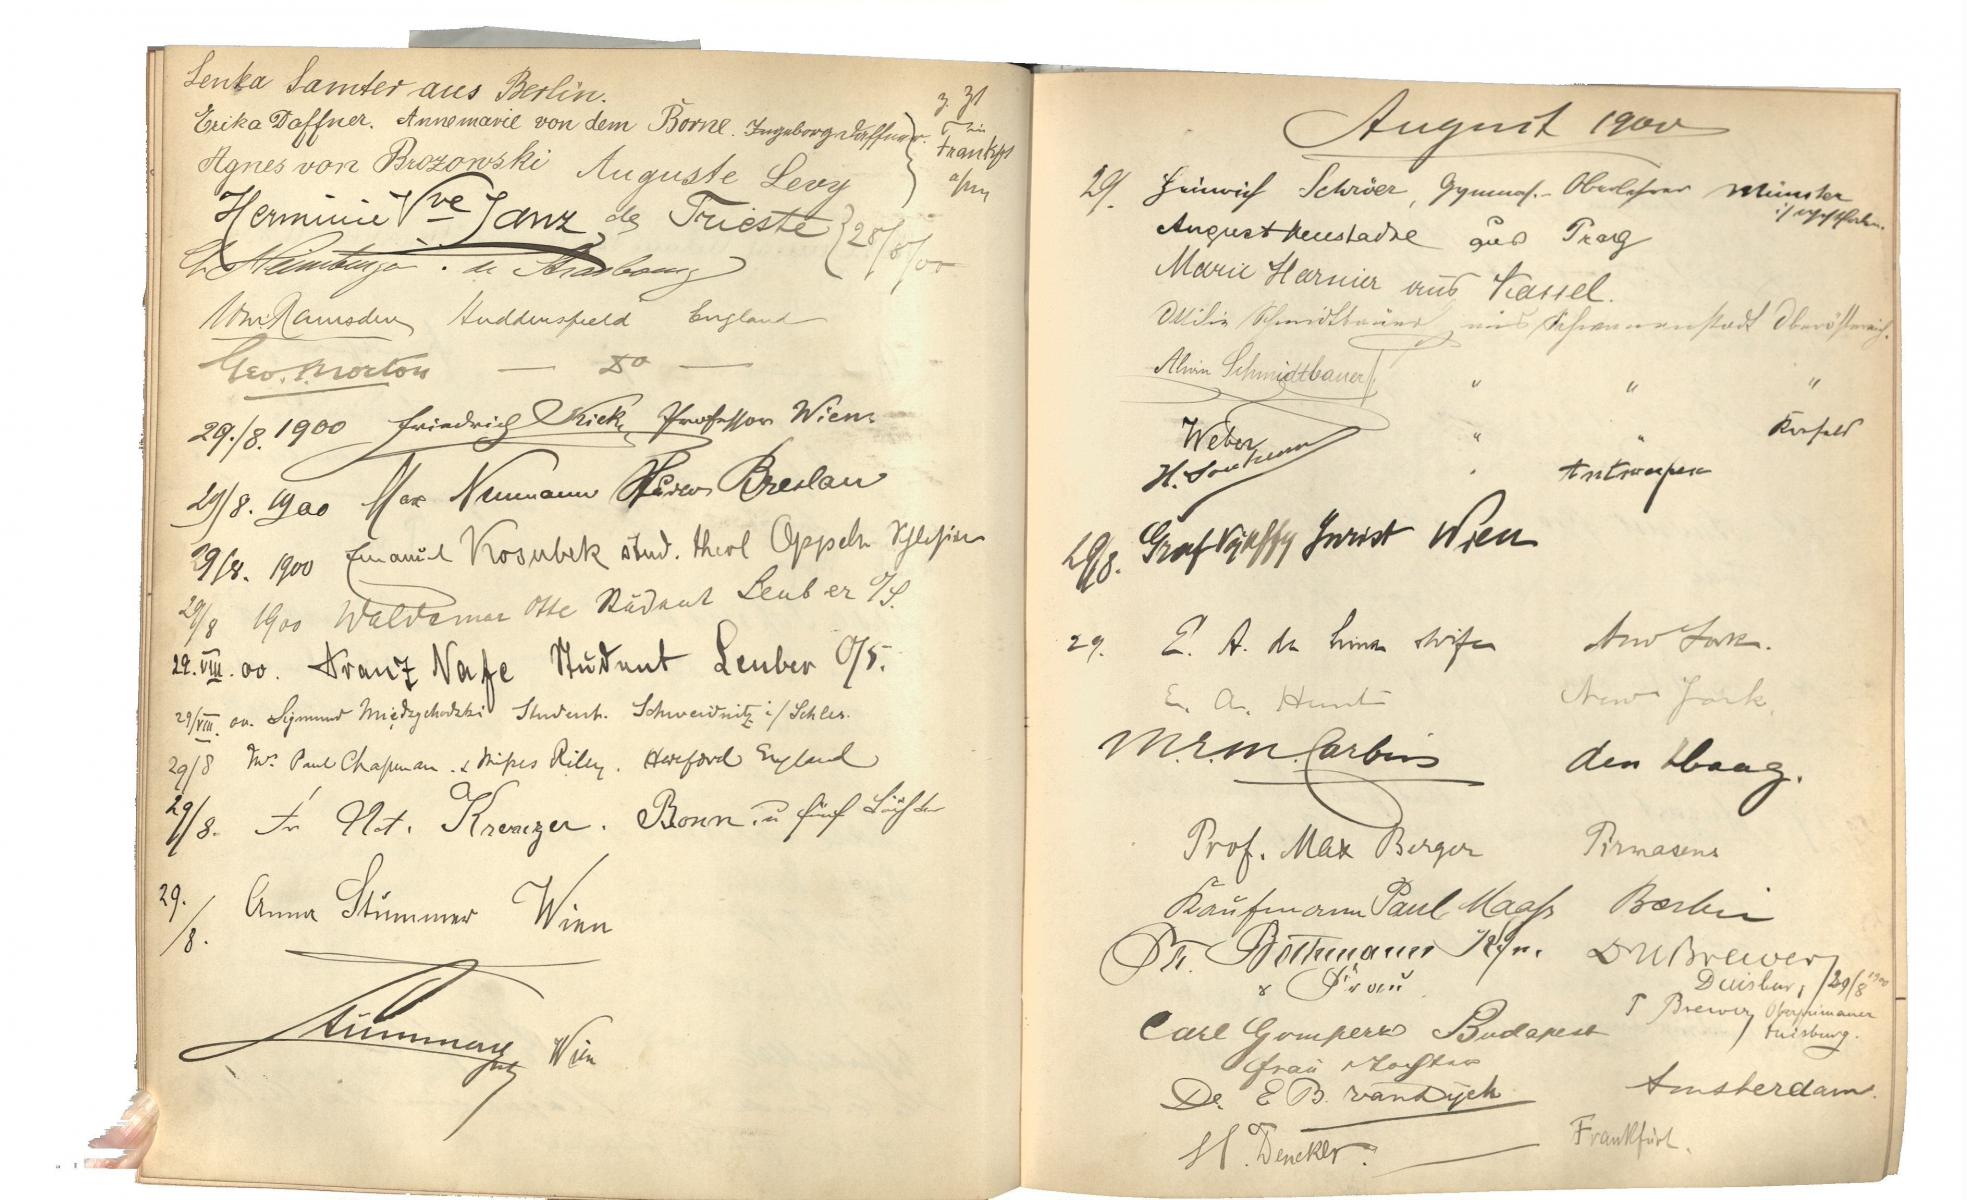 Lenka Samter aus Berlin.
Erika Daffner. Annemarie von dem Borne. Ingeborg Daffner.
z. Zt in Frankfrt a/m
Agnes von Brozowski Auguste Levy
Herminie Vve Janz de Trieste
28/8/00
de Strasbourg
Ramsden Huddersfield England
Geo. Morton — do —
29./8. 1900 Friedrich Kick, Professor Wien.
29/8. 1900 Max Neumann Breslau
29/8. 1900 Emanuel Kosubek stud. theol Oppeln Schlesien
29/8 1900 Waldemar Otte Student Leuber O/S.
29. VIII. 00. Franz Nafe Student Leuber O/S.
29/VIII. 00. Sigmund Międzychodzki Student. Schweidnitz i/ Schles.
29/8 Mr. Paul Chapman & Riley. Hereford England
29/8. Fr Not. Kreuzer. Bonn. u fünf Töchter
29./8. Anna Stummer Wien
Stummer Wien
August 1900
29. Heinrich Schröer, Gymnas.- Oberlehrer Münster i/ Westfalen.
August Neustadtl aus Prag
Marie Harnier aus Kassel.
Schmidtbauer aus Schwanenstadt Oberösterreich.
Alwin Schmidtbauer " " "
Weber " " Krefeld
H. " Antwerpen
29/8. Graf Jurist Wien
29. E. A. de Lima & wife New York.
E. A. Hunt New York.
M.E.M. den Haag.
Prof. Max Berger Pirmasens
Kaufmann Paul Maass Berlin
Bothmann Kfm. & Frau
Brewer Duisburg 29/8 1900
Brewer Oberprimaner Duisburg.
Carl Gomperz Budapest
Frau & Tochter
Dr. E B. van Dyck Amsterdam.
H. Dencker. — Frankfurt.